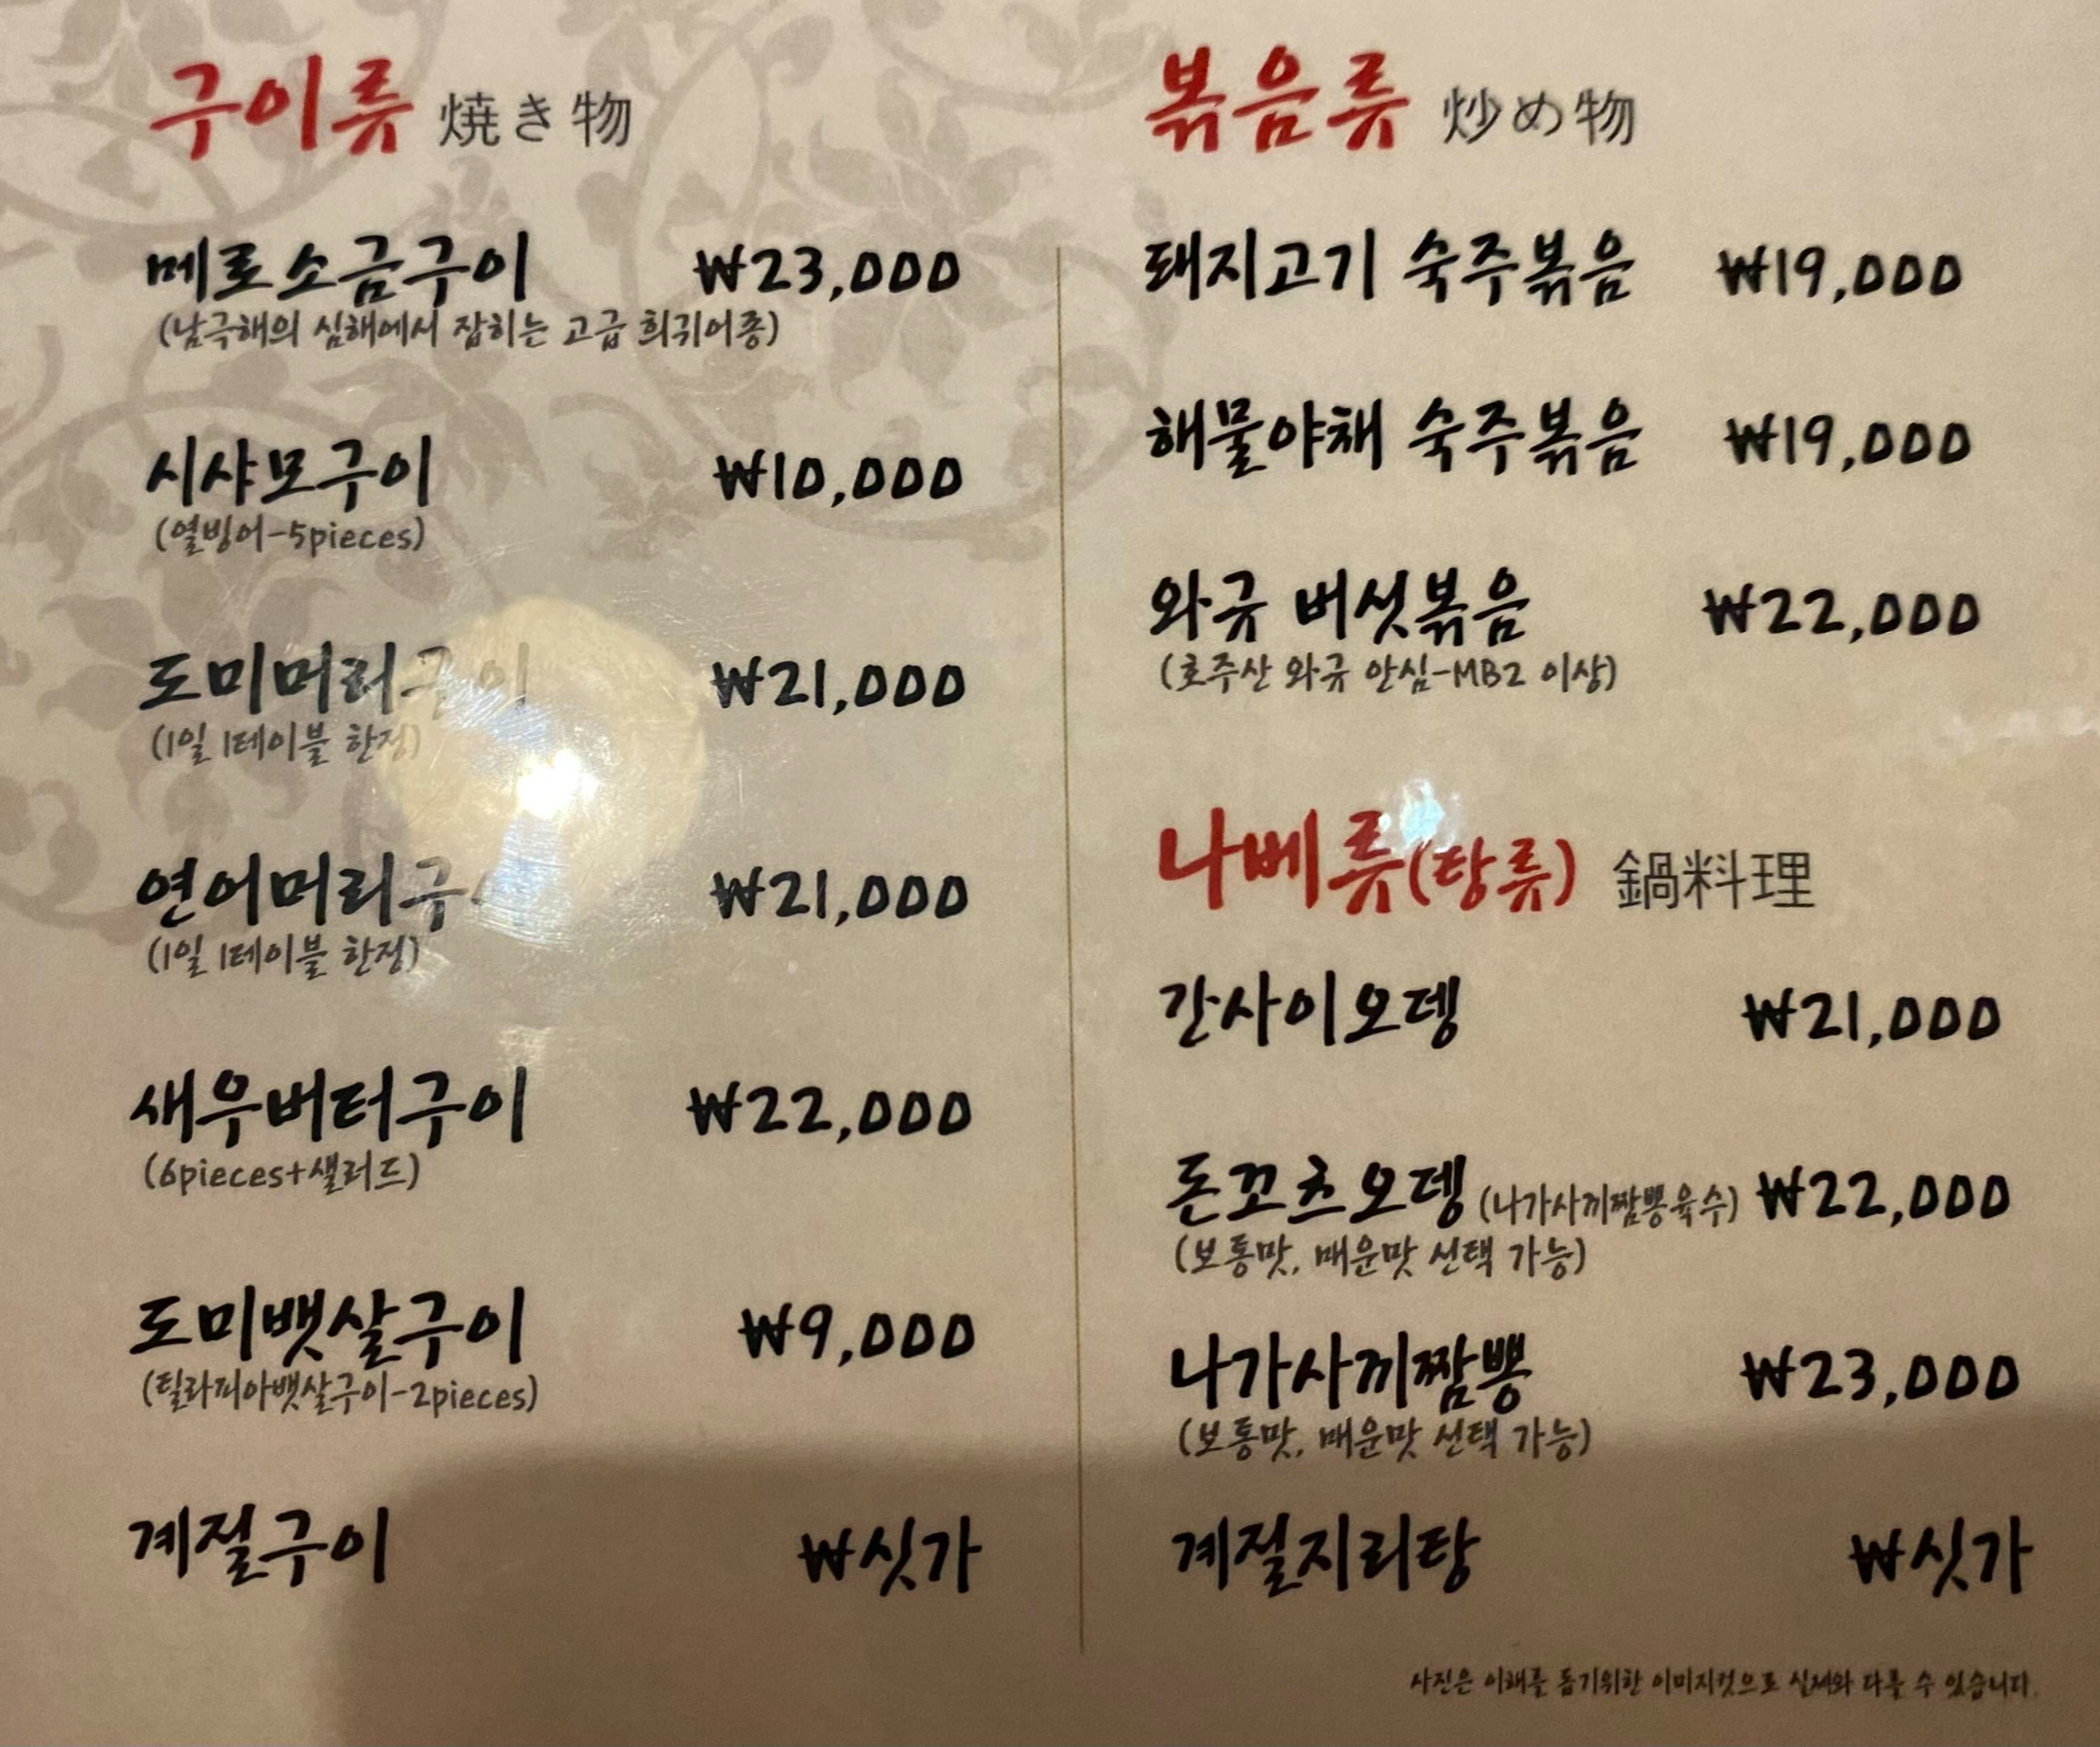 구이류 焼き物
메로소금구이 ₩23,000
(남극해의 심해에서 잡히는 고급 희귀어종)
시샤모구이 ₩10,000
(열빙어-5pieces)
도미머리구이 ₩21,000
(1일 1테이블 한정)
연어머리구 ₩21,000
(1일 1테이블 한정)
새우버터구이 ₩22,000
(6pieces+샐러드)
도미뱃살구이 ₩9,000
(틸라피아뱃살구이-2pieces)
계절구이 ₩싯가
볶음류 炒め物
돼지고기 숙주볶음 ₩19,000
해물야채 숙주볶음 ₩19,000
와규 버섯볶음 ₩22,000
(호주산 와규 안심-MB2 이상)
나베류(탕류) 鍋料理
간사이오뎅 ₩21,000
돈꼬츠오뎅 (나가사끼짬뽕육수) ₩22,000
(보통맛, 매운맛 선택 가능)
나가사끼짬뽕 ₩23,000
(보통맛, 매운맛 선택 가능)
계절지리탕 ₩싯가
사진은 이해를 돕기위한 이미지컷으로 실제와 다를 수 있습니다.